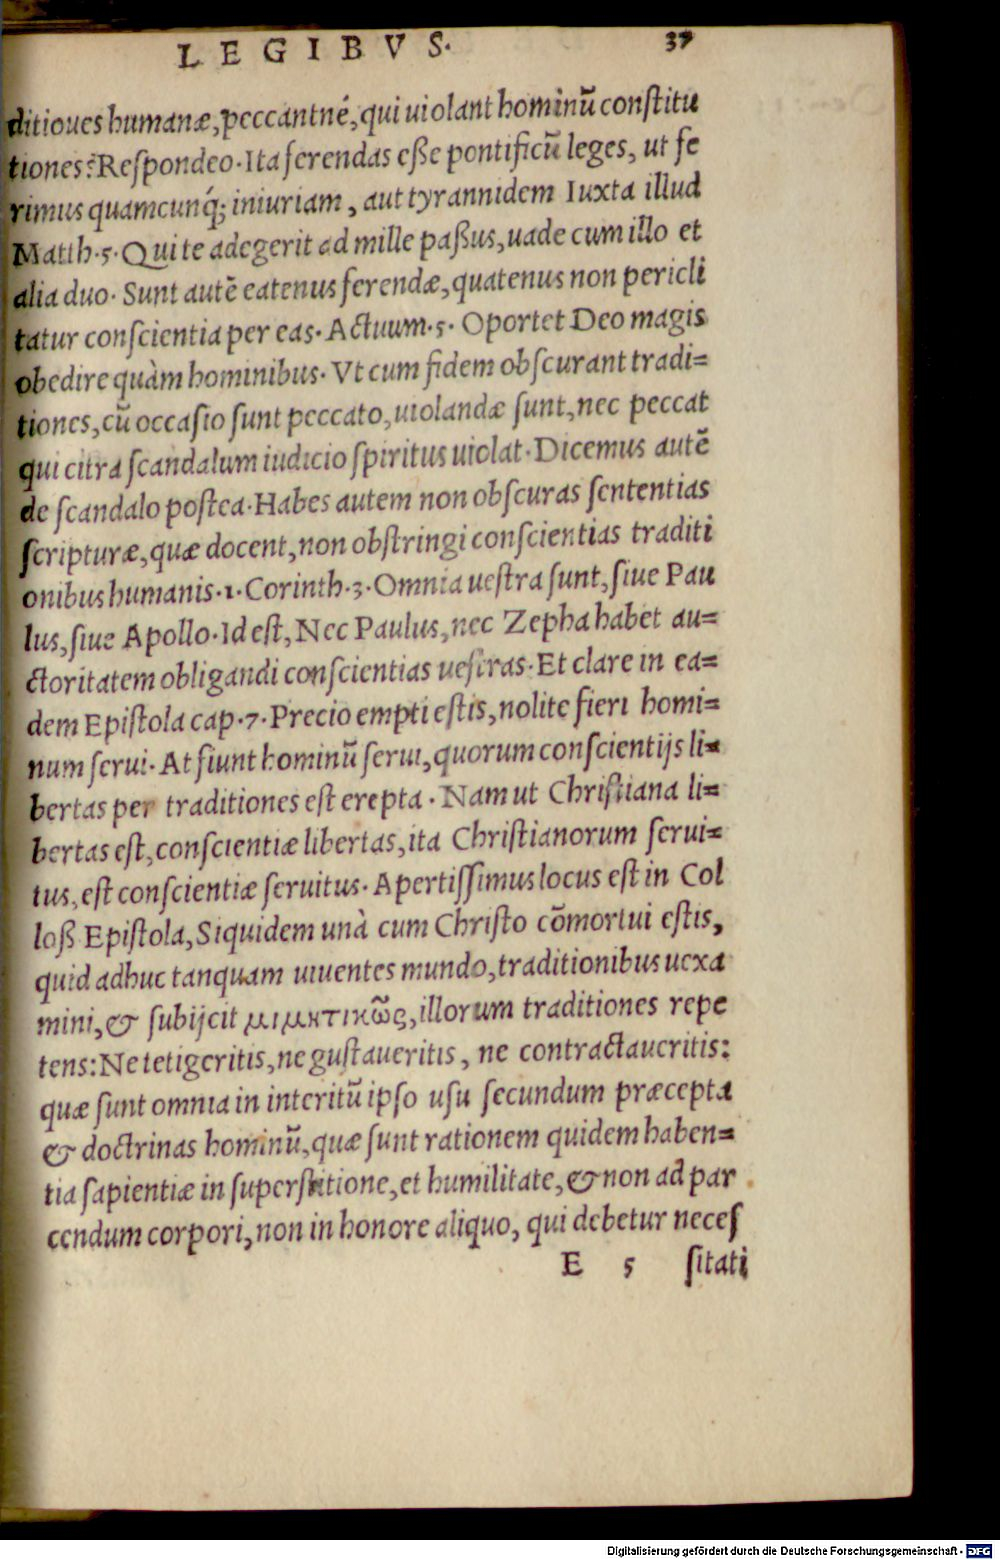 LEGIBVS. 37
ditiones humanæ, peccantné, qui uiolant hominũ constitu
tiones? Respondeo. Ita ferendas esße pontificũ leges, ut fe
rimus quamcunq́; iniuriam, aut tyrannidem Iuxta illud
Matth. 5. Qui te adegerit ad mille paßus, uade cum illo et
alia duo. Sunt autẽ eatenus ferendæ, quatenus non pericli
tatur conscientia per eas. Actuum. 5. Oportet Deo magis
obedire quàm hominibus. Vt cum fidem obscurant tradi=
tiones, cũ occasio sunt peccato, uiolandæ sunt, nec peccat
qui citra scandalum iudicio spiritus uiolat. Dicemus autẽ
de scandalo postea. Habes autem non obscuras sententias
scripturæ, quæ docent, non obstringi conscientias traditi
onibus humanis. 1. Corinth. 3. Omnia uestra sunt, siue Pau
lus, siue Apollo. Id est, Nec Paulus, nec Zepha habet au=
ctoritatem obligandi conscientias uestras. Et clare in ea=
dem Epistola cap. 7. Precio empti estis, nolite fieri homi=
num serui. At fiunt hominũ serui, quorum conscientijs li=
bertas per traditiones est erepta. Nam ut Christiana li=
bertas est, conscientiæ libertas, ita Christianorum serui=
tus, est conscientiæ seruitus. Apertissimus locus est in Col
loß Epistola, Siquidem unà cum Christo cõmortui estis,
quid adhuc tanquam uiuentes mundo, traditionibus uexa
mini, & subijcit μιμητικῶς, illorum traditiones repe
tens: Ne tetigeritis, ne gustaueritis, ne contractaueritis:
quæ sunt omnia in interitũ ipso usu secundum præcepta
& doctrinas hominũ, quæ sunt rationem quidem haben=
tia sapientiæ in superstitione, et humilitate, & non ad par
cendum corpori, non in honore aliquo, qui debetur neces
E 5 sitati
Digitalisierung gefördert durch die Deutsche Forschungsgemeinschaft - DFG